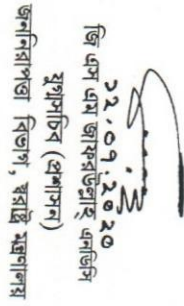 ২২.০৭.২০২০
জি এস এম জাফরউল্লাহ্ এনডিসি
যুগ্মসচিব (প্রশাসন)
জননিরাপত্তা বিভাগ, স্বরাষ্ট্র মন্ত্রণালয়